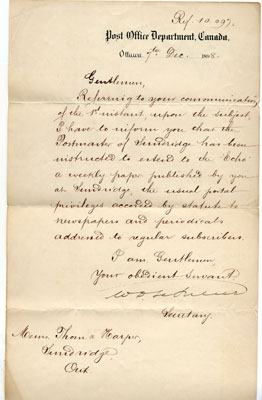 Ref. 10.297.
Post Office Department, Canada.
Ottawa, 7th Dec. 1888.
Gentlemen,
Referring to your communication
of the 1st instant upon the subject,
I have to inform you that the
Postmaster of Sundridge has been
instructed to extend to the "Echo"
a weekly paper published by you
at Sundridge, the usual postal
privileges accorded by statute to
newspapers and periodicals
addressed to regular subscribers.
I am, Gentlemen,
Your obedient Servant
Secretary.
Messrs. Thom & Harper,
Sundridge,
Ont